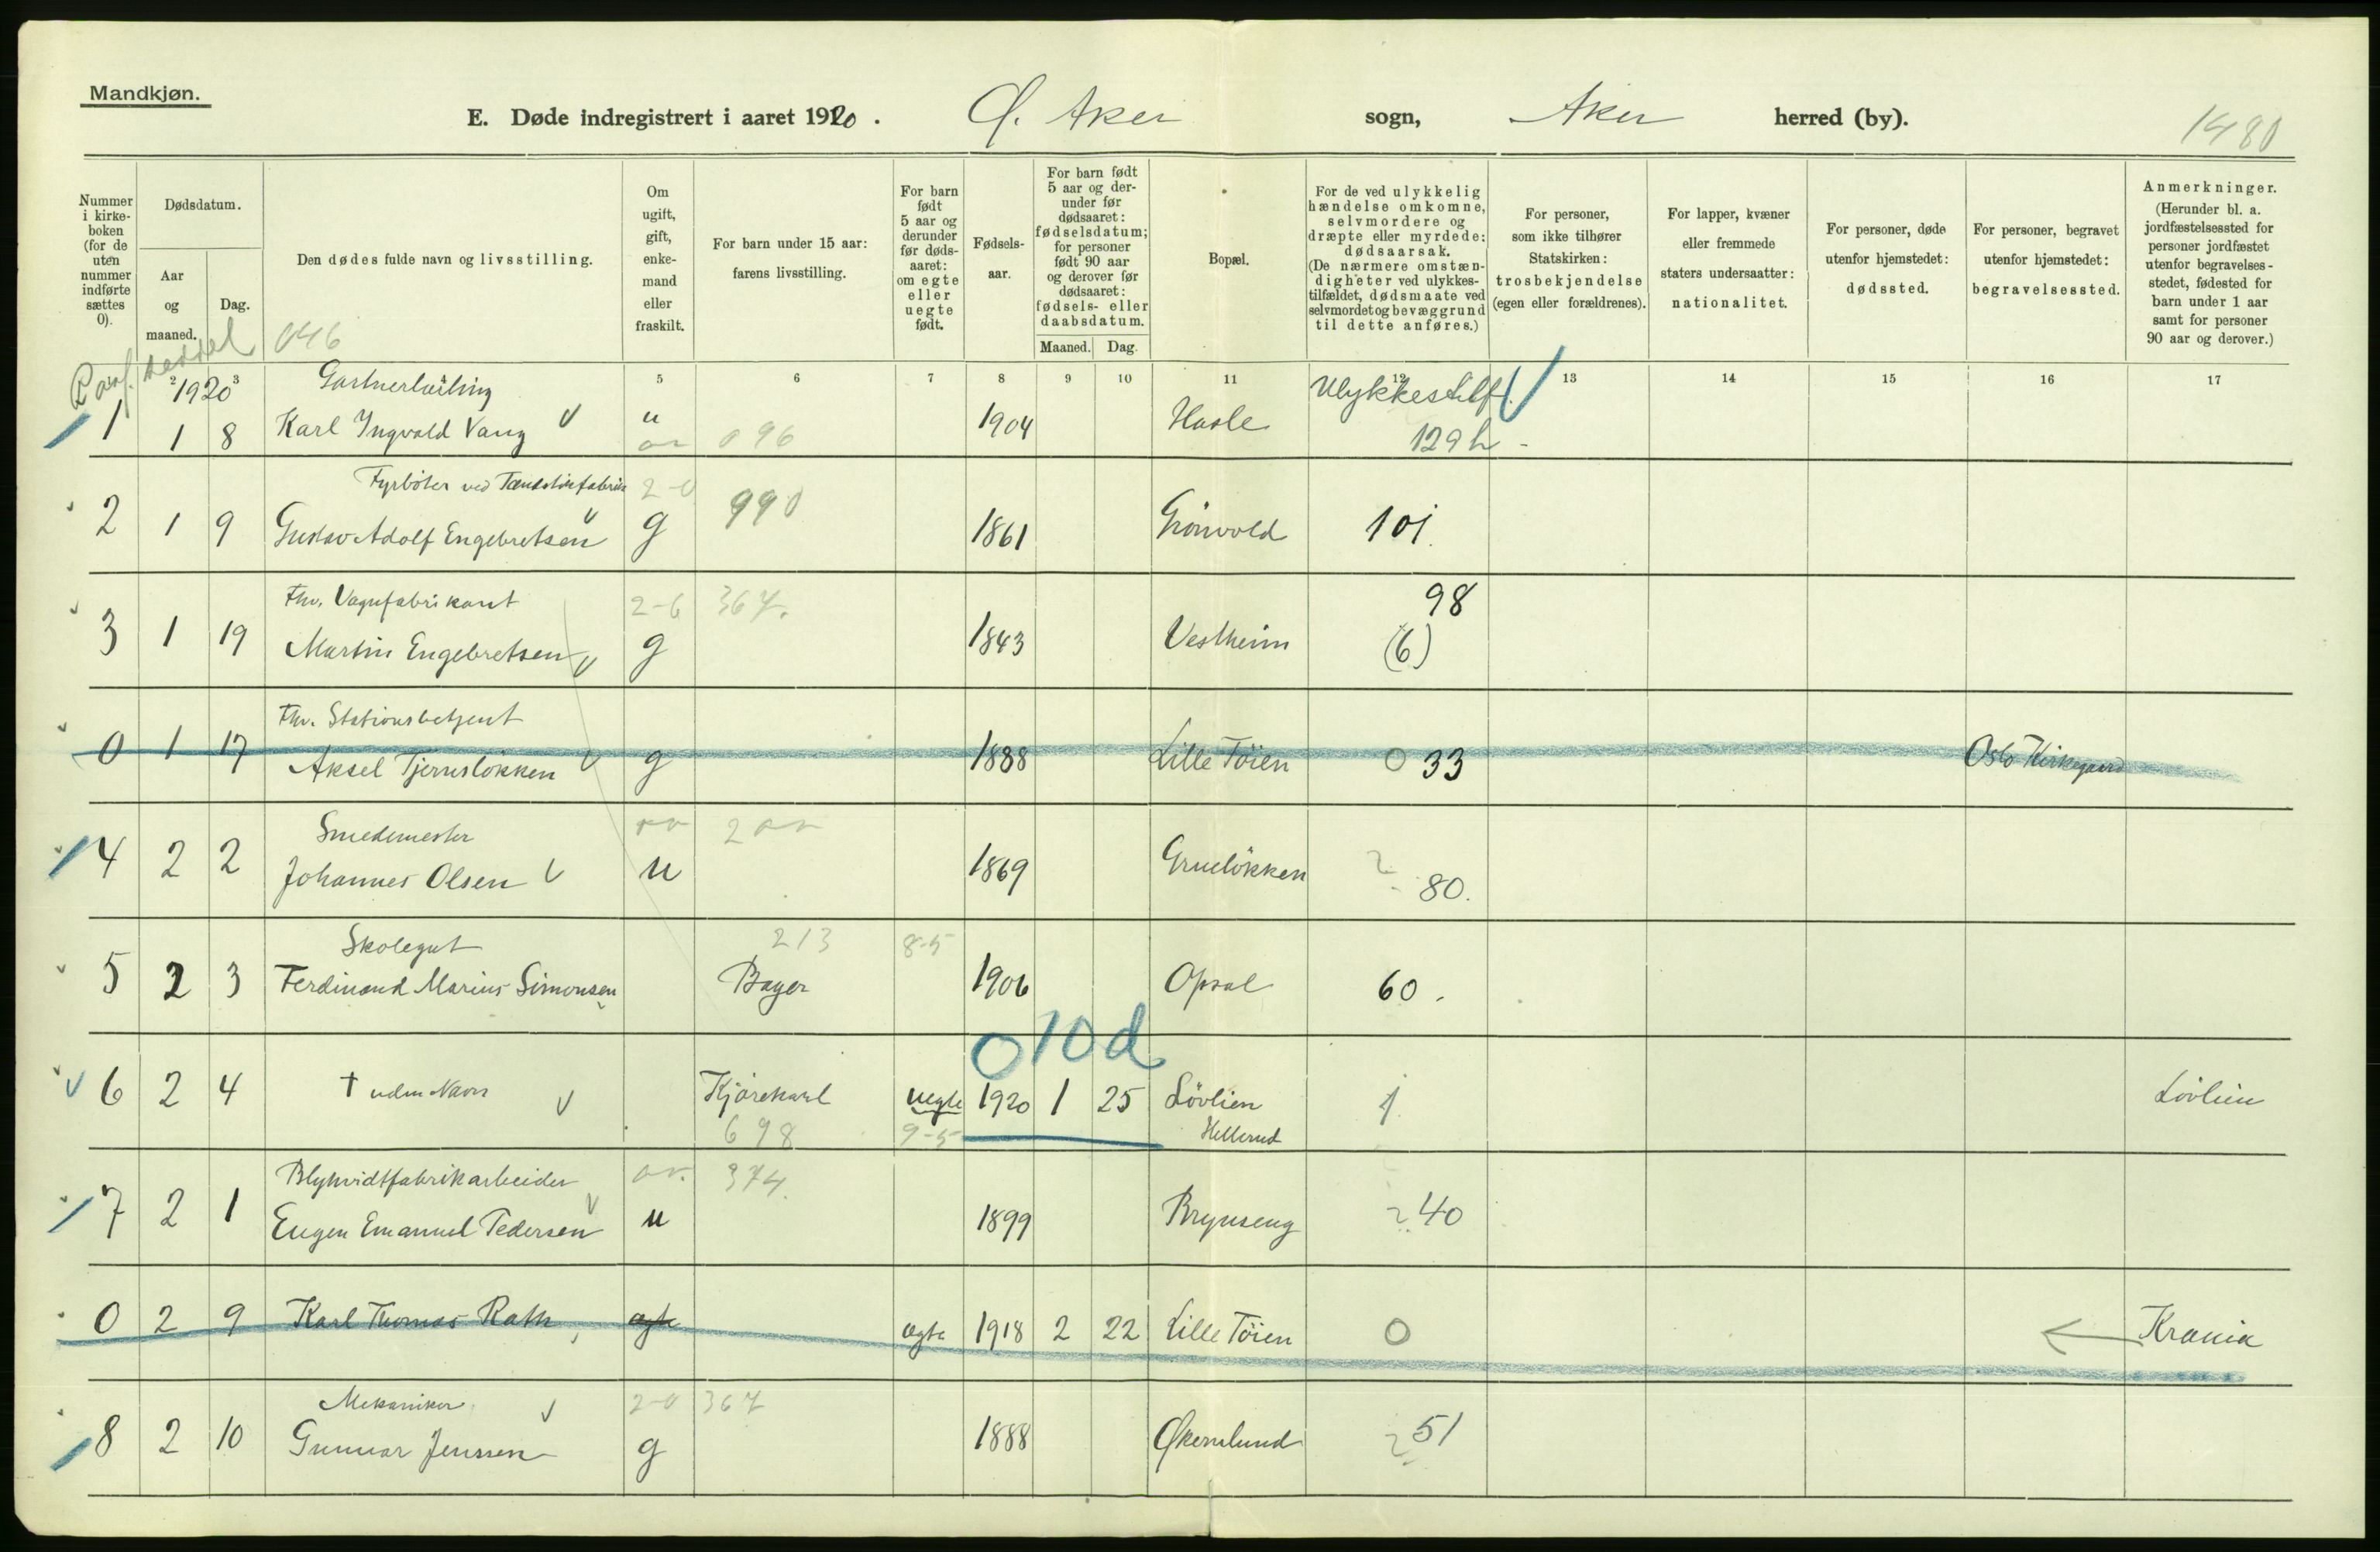 Mandkjøn.
E. Døde indregistrert i aaret 1920. Ø. Aker sogn, Aker herred (by).
1480
Nummer i kirke-boken (for de uten nummer indførte sættes 0).
Dødsdatum.
Aar og maaned.
Dag.
Den dødes fulde navn og livsstilling.
Om ugift, gift, enke-mand eller fraskilt.
For barn under 15 aar: farens livsstilling.
For barn født 5 aar og derunder før døds-aaret: om egte eller uegte født.
Fødsels-aar.
For barn født 5 aar og der-under før dødsaaret: fødselsdatum; for personer født 90 aar og derover før dødsaaret: fødsels- eller daabsdatum.
Maaned. Dag.
Bopæl.
For de ved ulykkelig hændelse omkomne, selvmordere og dræpte eller myrdede: dødsaarsak. (De nærmere omstæn-digheter ved ulykkes-tilfældet, dødsmaate ved selvmordet og bevæggrund til dette anføres.)
For personer, som ikke tilhører Statskirken: trosbekjendelse (egen eller forældrenes).
For lapper, kvæner eller fremmede staters undersaatter: nationalitet.
For personer, døde utenfor hjemstedet: dødssted.
For personer, begravet utenfor hjemstedet: begravelsessted.
Anmerkninger. (Herunder bl. a. jordfæstelsessted for personer jordfæstet utenfor begravelses-stedet, fødested for barn under 1 aar samt for personer 90 aar og derover.)
046
2 3 5 6 7 8 9 10 11 12 13 14 15 16 17
1920 Gartnerlærling Ulykkestilf.
1 1 8 Karl Ingvald Vang u 096 1904 Hasle 129h -
Fyrböter ved Tændstikfabrik 2-0 990
2 1 9 Gustav Adolf Engebretsen g 1861 Grönvold 101.
Fhv. Vognfabrikant 2-6 367. 98
3 1 19 Martin Engebretsen g 1843 Vestheim (6)
Fhv. Stationsbetjent
0 1 17 Aksel Tjernsløkken g 1888 Lille Töien 0 33 Oslo Kirkegaard
Smedemester
4 2 2 Johannes Olsen u 1869 Grueløkken 80.
Skolegut 213 8-5
5 2 3 Ferdinand Marius Simonsen Bager 1906 Opsal 60.
0 10 d
6 2 4 † uden Navn Kjörekarl uegte 1920 1 25 Lövlien 1 Lövlien
698 9-5 Hellerud
Blyhvidtfabrikarbeider 374.
7 2 1 Eugen Emanuel Pedersen u 1899 Brynseng 40
0 2 9 Karl Thomas Rath ægte ægte 1918 2 22 Lille Töien 0 ← Krania
Mekaniker 2-0 367
8 2 10 Gunnar Jenssen g 1888 Økernlund 51